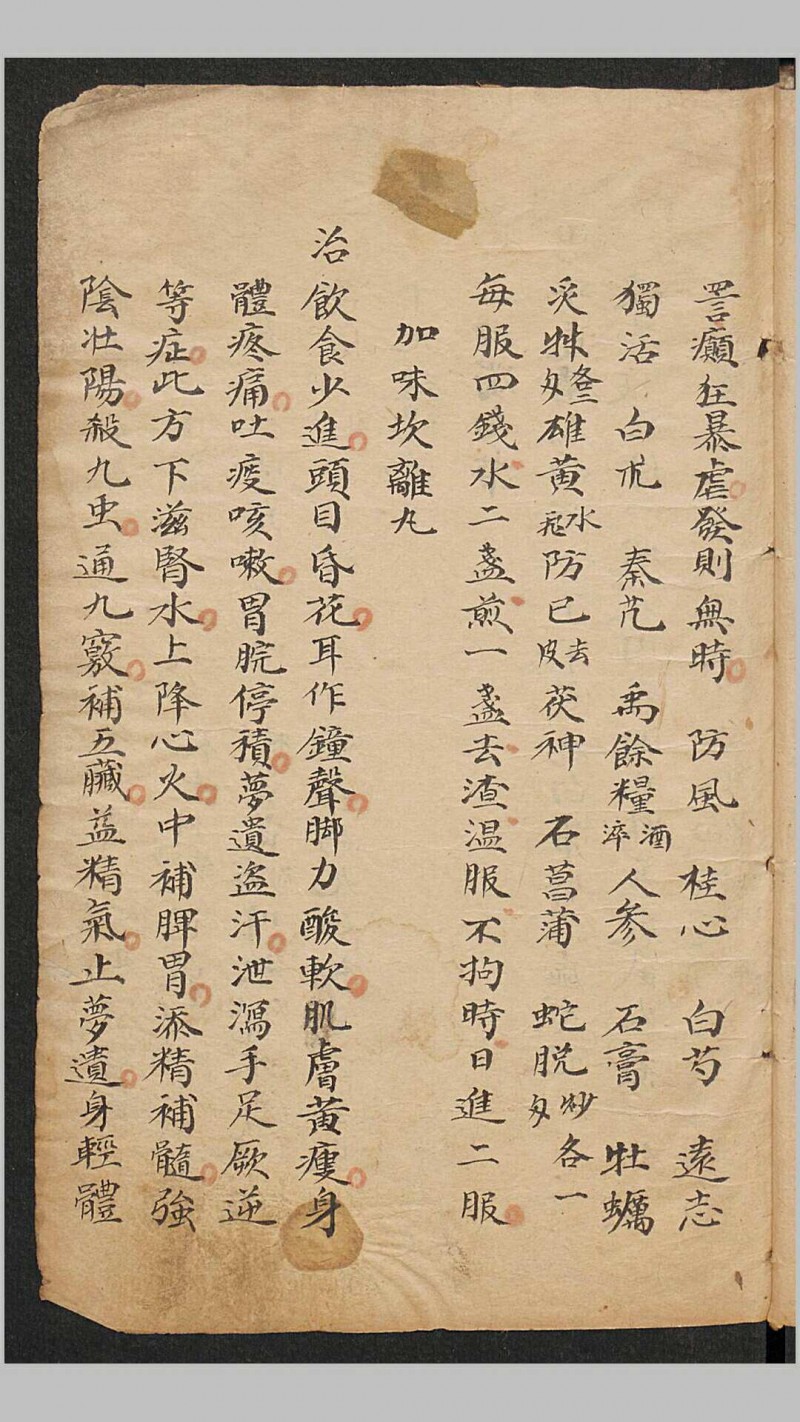 詈癲狂暴虐發則無時 防風 桂心 白芍 遠志
獨活 白朮 秦芃 禹餘糧酒淬人參 石膏 牡蠣
炙牡各三夕雄黃水飛防已去皮茯神 石菖蒲 蛇脱炒夕各一
每服四錢水二盞煎一盞去渣温服不拘時日進二服
加味坎離丸
治飲食少進頭目昏花耳作鐘聲脚力酸軟肌膚黃瘦身
體疼痛吐痰咳嗽胃脘停積夢遺盗汗泄瀉手足厥逆
等症此方下滋腎水上降心火中補脾胃添精補髓強
陰壯陽殺九虫通九竅補五臟益精氣止夢遺身輕體